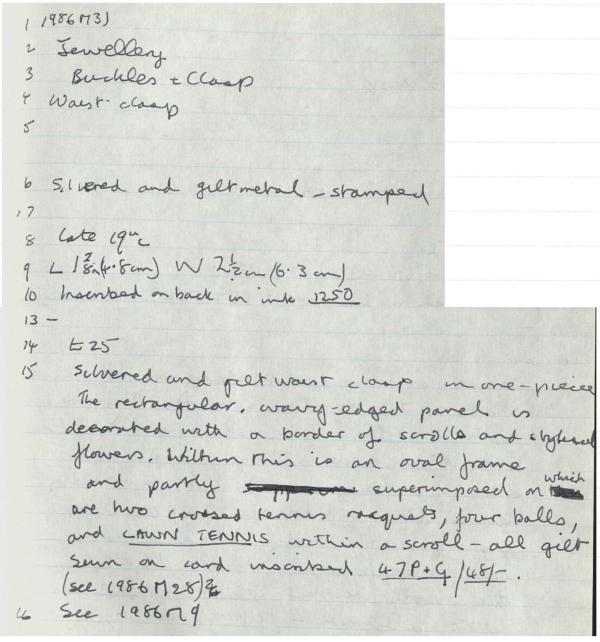 1 1986M31
2 Jewellery
3 Buckles + Clasp
4 Waist-clasp
5
6 Silvered and gilt metal - stamped
7
8 Late 19th C
9 L 1 7/8in (4.8cm) W 2 1/2in (6.3cm)
10 Inscribed on back in ink 1250
13 -
14 £25
15 Silvered and gilt waist clasp in one-piece
The rectangular, wavy-edged panel is
decorated with a border of scrolls and stylised
flowers. Within this is an oval frame
and partly superimposed on which
are two crossed tennis racquets, four balls,
and LAWN TENNIS within a scroll - all gilt
sewn on card inscribed 47P+G/48/-.
(see 1986M28)
16 See 1986M9